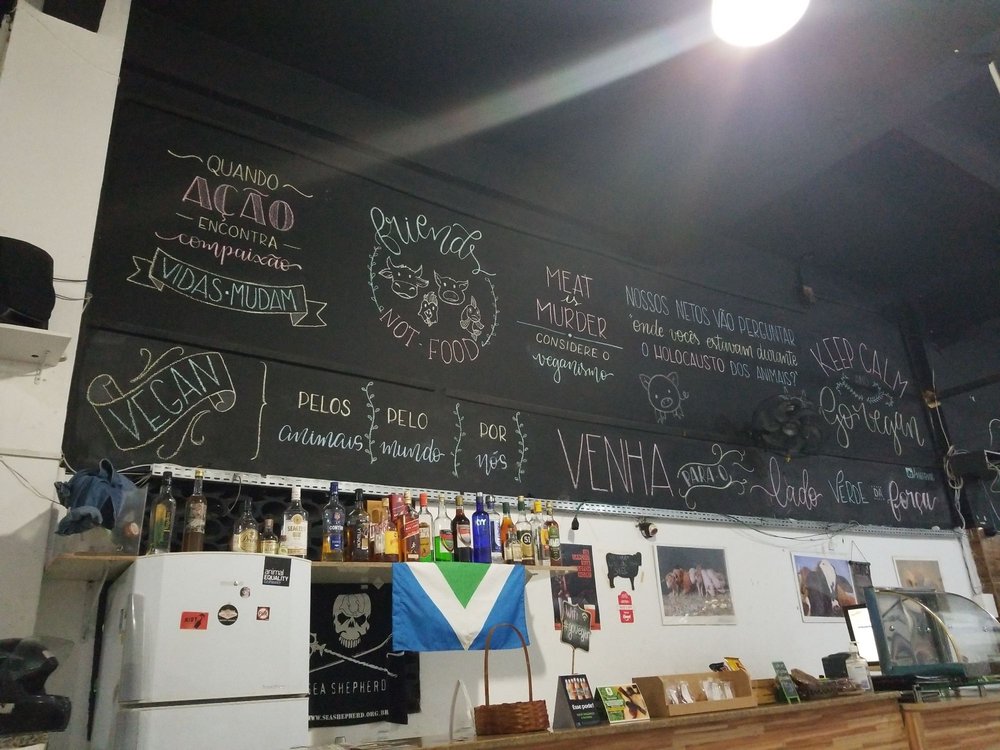 QUANDO
AÇÃO
ENCONTRA
compaixão
VIDAS • MUDAM
friends
NOT • FOOD
MEAT
is
MURDER
CONSIDERE O
veganismo
NOSSOS NETOS VÃO PERGUNTAR
"onde vocês estavam durante
O HOLOCAUSTO DOS ANIMAIS?"
KEEP CALM
AND
Go vegan
VEGAN
PELOS
animais
PELO
mundo
POR
nós
VENHA
PARA O
lado
VERDE DA
força
animal
EQUALITY
SEA SHEPHERD
WWW.SEASHEPHERD.ORG.BR